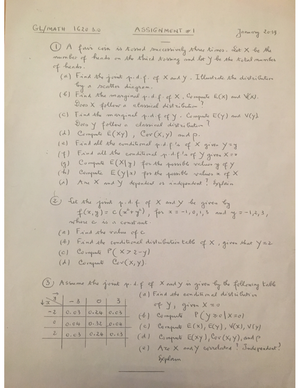 GL/MATH 1620 3.0 ASSIGNMENT #1 January 2019
① A fair coin is tossed successively three times. Let X be the
number of heads on the third tossing and let Y be the total number
of heads.
(a) Find the joint p.d.f. of X and Y. Illustrate the distribution
by a scatter diagram.
(b) Find the marginal p.d.f. of X. Compute E(X) and V(X).
Does X follow a classical distribution?
(c) Find the marginal p.d.f. of Y. Compute E(Y) and V(Y)
Does Y follow a classical distribution?
(d) Compute E(XY), Cov(X,Y) and ρ.
(e) Find all the conditional p.d.f.'s of X given Y=y
(f) Find all the conditional p.d.f.'s of Y given X=x
(g) Compute E(X|y) for the possible values y of Y
(h) Compute E(Y|x) for the possible values x of X
(i) Are X and Y dependent or independent? Explain
② Let the joint p.d.f. of X and Y be given by
for
where c is a constant
(a) Find the value of c
(b) Find the conditional distribution table of X, given that Y=2
(c) Compute P(X>2-Y)
(d) Compute Cov(X,Y).
③ Assume the joint p.d.f. of X and Y is given by the following table
(a) Find the conditional distribution
of Y, given X=0
(b) Compute
(c) Compute E(X), E(Y), V(X), V(Y)
(d) Compute E(XY), Cov(X,Y), and ρ
(e) Are X and Y correlated? Independent?
Explain